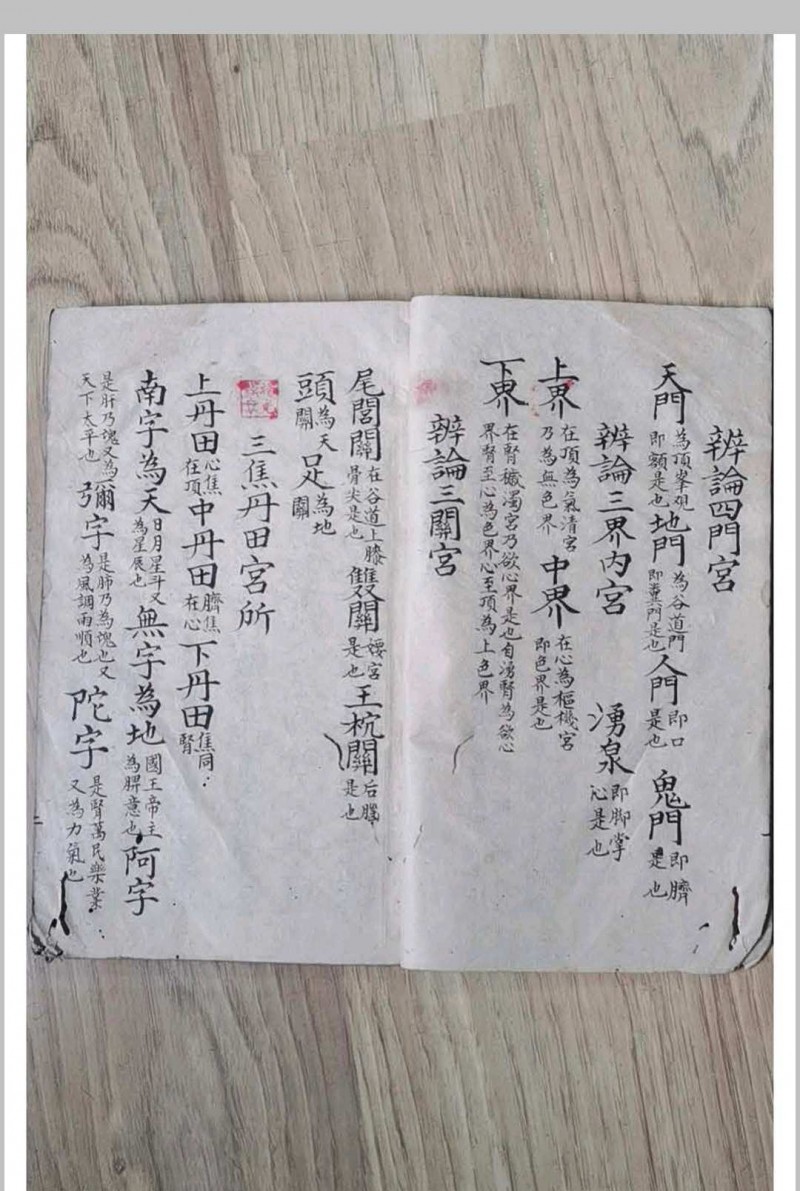 辨論四門宮
天門 為頂峯觀即額是也 地門 為谷道門即糞門是也 人門 即口是也 鬼門 即臍是也
辨論三界內宮 湧泉 即脚掌沁是也
上界 在頂為氣清宮乃為無色界 中界 在心為樞機宮即色界是也
下界 在腎穢濁宮乃欲心界是也自湧腎為欲心界腎至心為色界心至頂為上色界
辨論三關宮
尾閭關 在谷道上膝骨尖是也 雙關 媱宮是也 王枕關 后腦是也
頭 為天關 足 為地關
三焦丹田宮所
上丹田 心焦在頂 中丹田 臍焦在心 下丹田 焦同腎
南字為天 日月星斗又為星辰也 無字為地 國王帝主為脾意也 阿字
是肝乃塊又為天下太平也 彌字 是肺乃為塊也又為風調雨順也 陀字 是腎萬民樂業又為力氣也